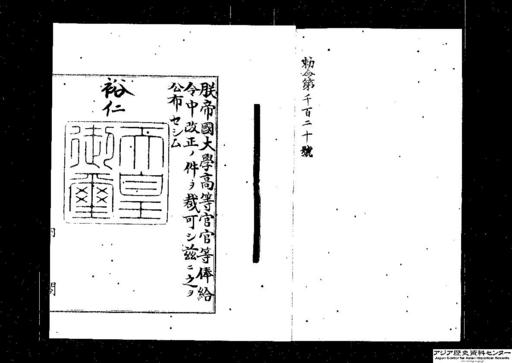 勅令第千百二十號
朕帝國大學高等官官等俸給
令中改正ノ件ヲ裁可シ茲ニ之ヲ
公布セシム
裕仁
天皇
御璽
内閣
アジア歴史資料センター
Japan Center for Asian Historical Records